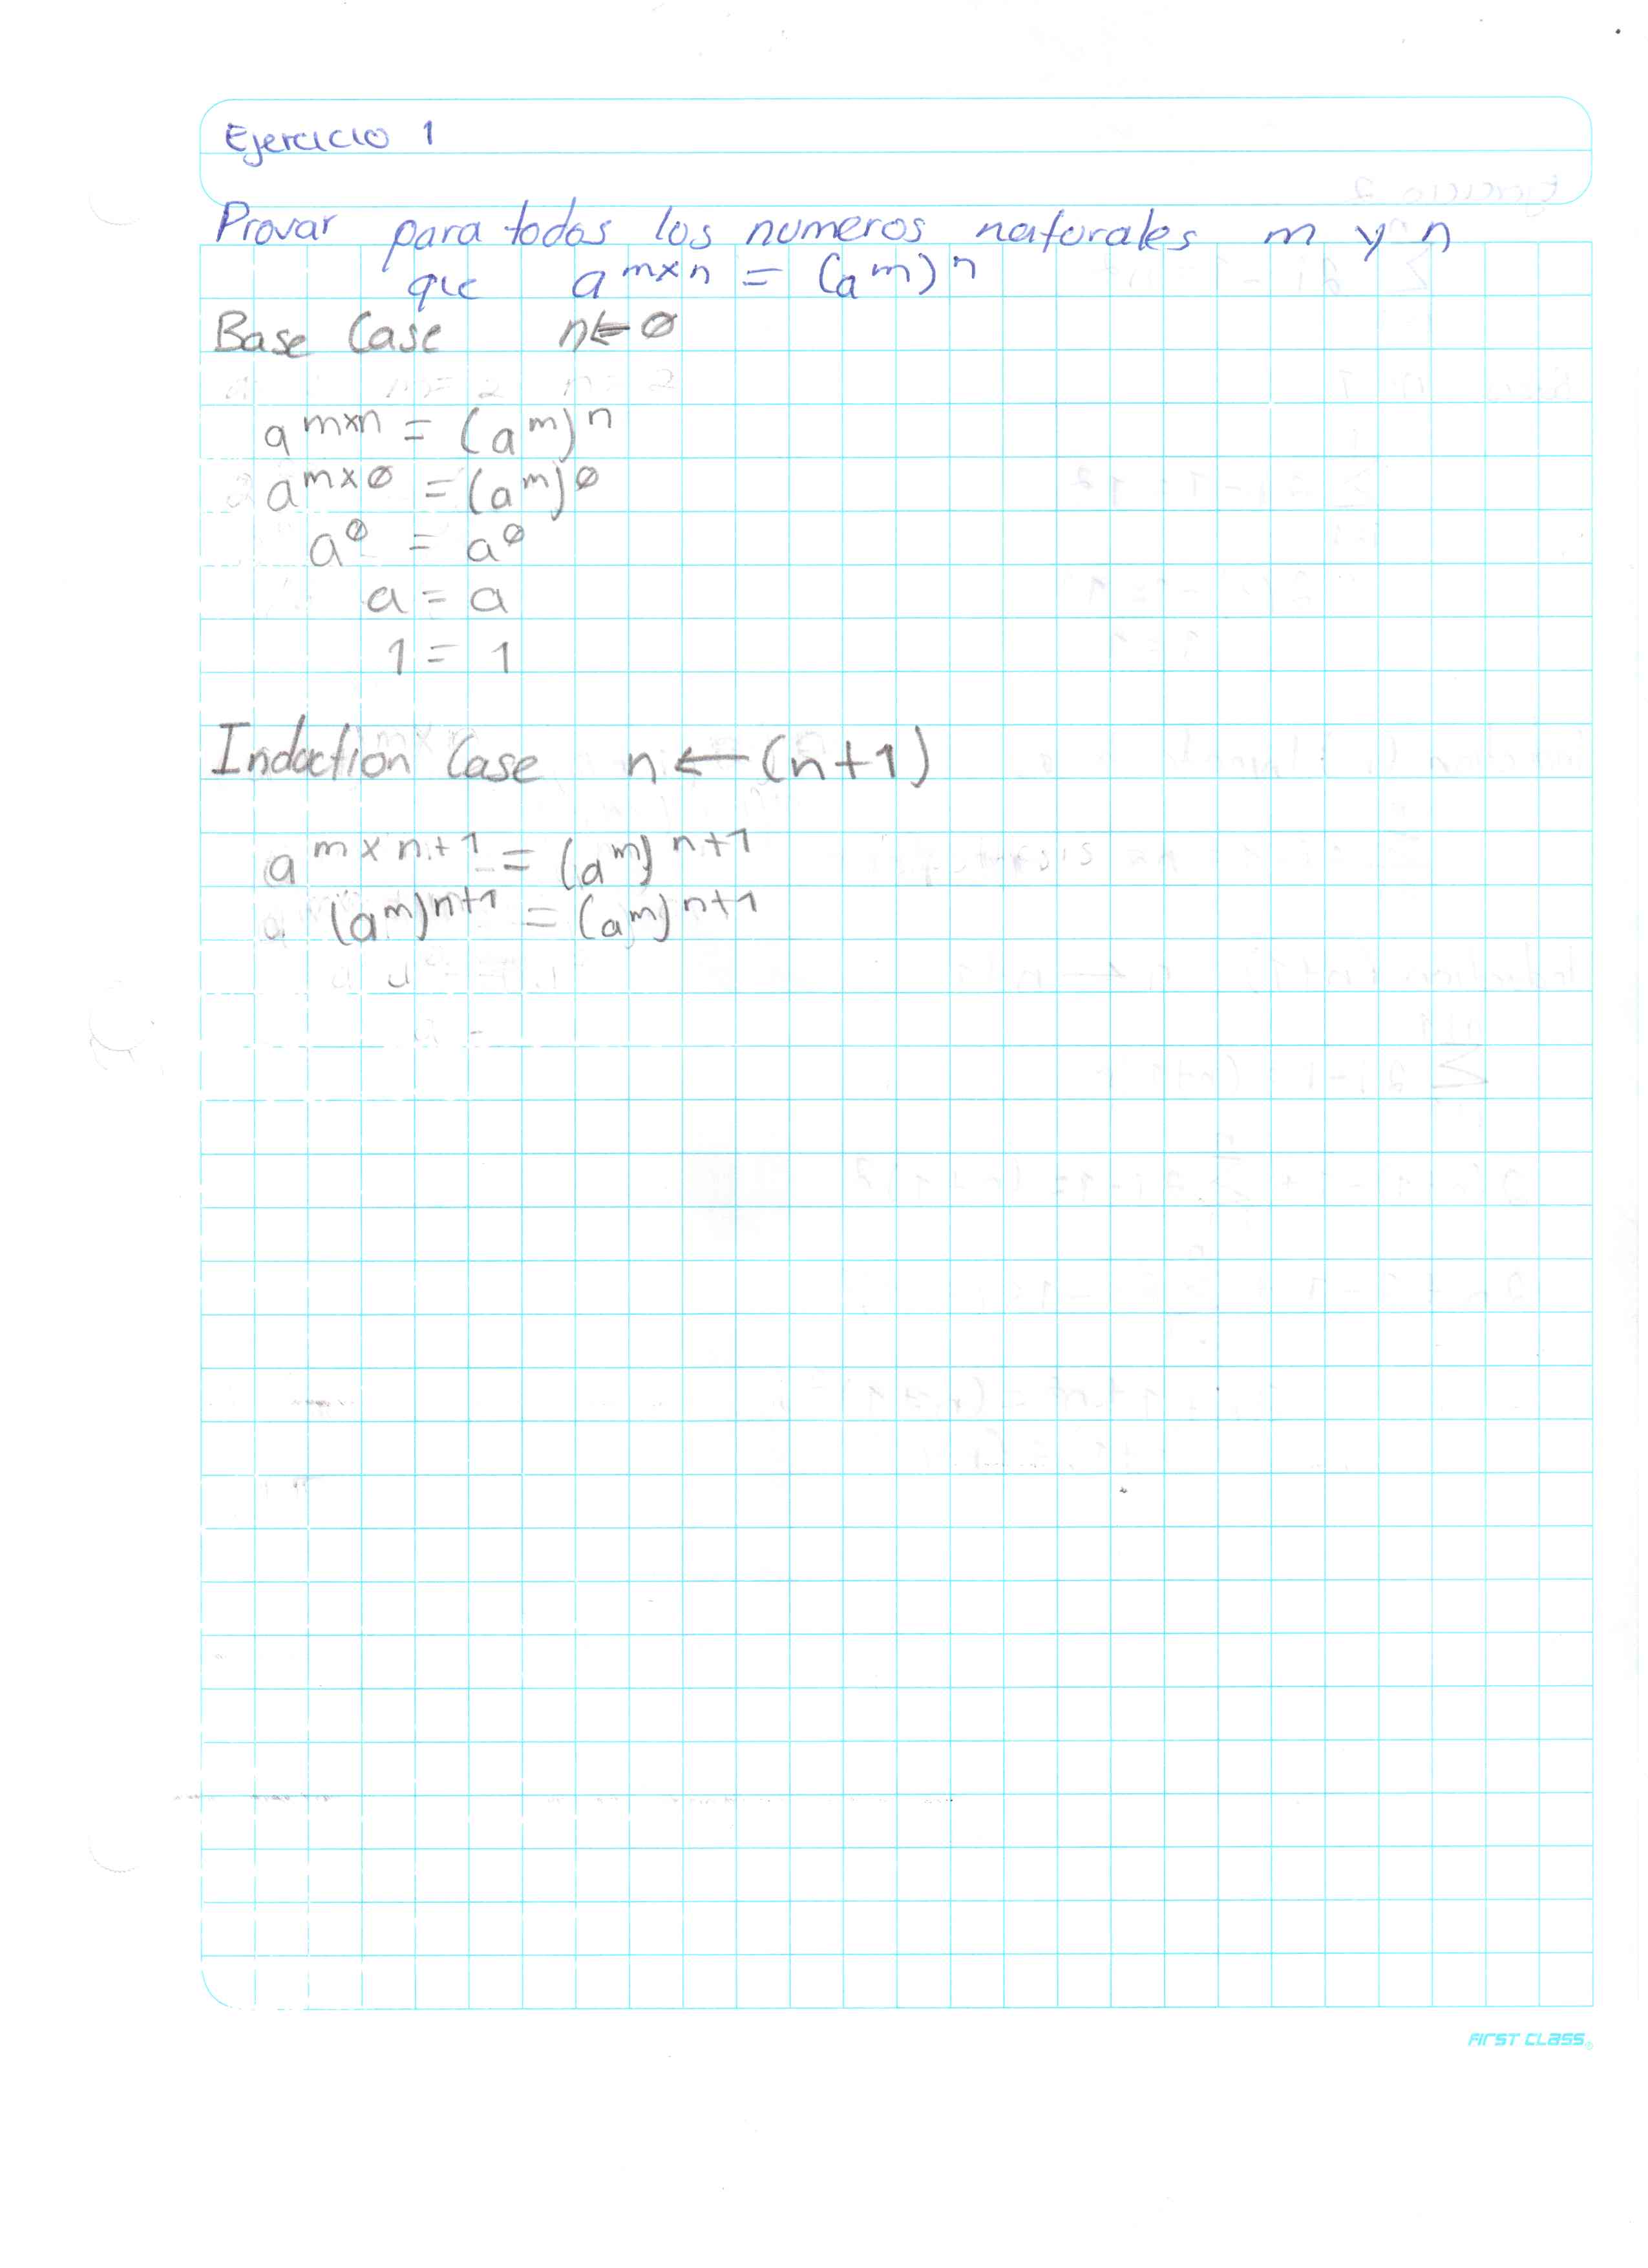 Ejercicio 1
Provar para todos los numeros naturales m y n
que a^{m×n} = (a^m)^n
Base Case n ← ∅
a^{m×n} = (a^m)^n
a^{m×∅} = (a^m)^∅
a^∅ = a^∅
a = a
1 = 1
Induction Case n ← (n+1)
a^{m×n+1} = (a^m)^{n+1}
(a^m)^{n+1} = (a^m)^{n+1}
FIRST CLASS